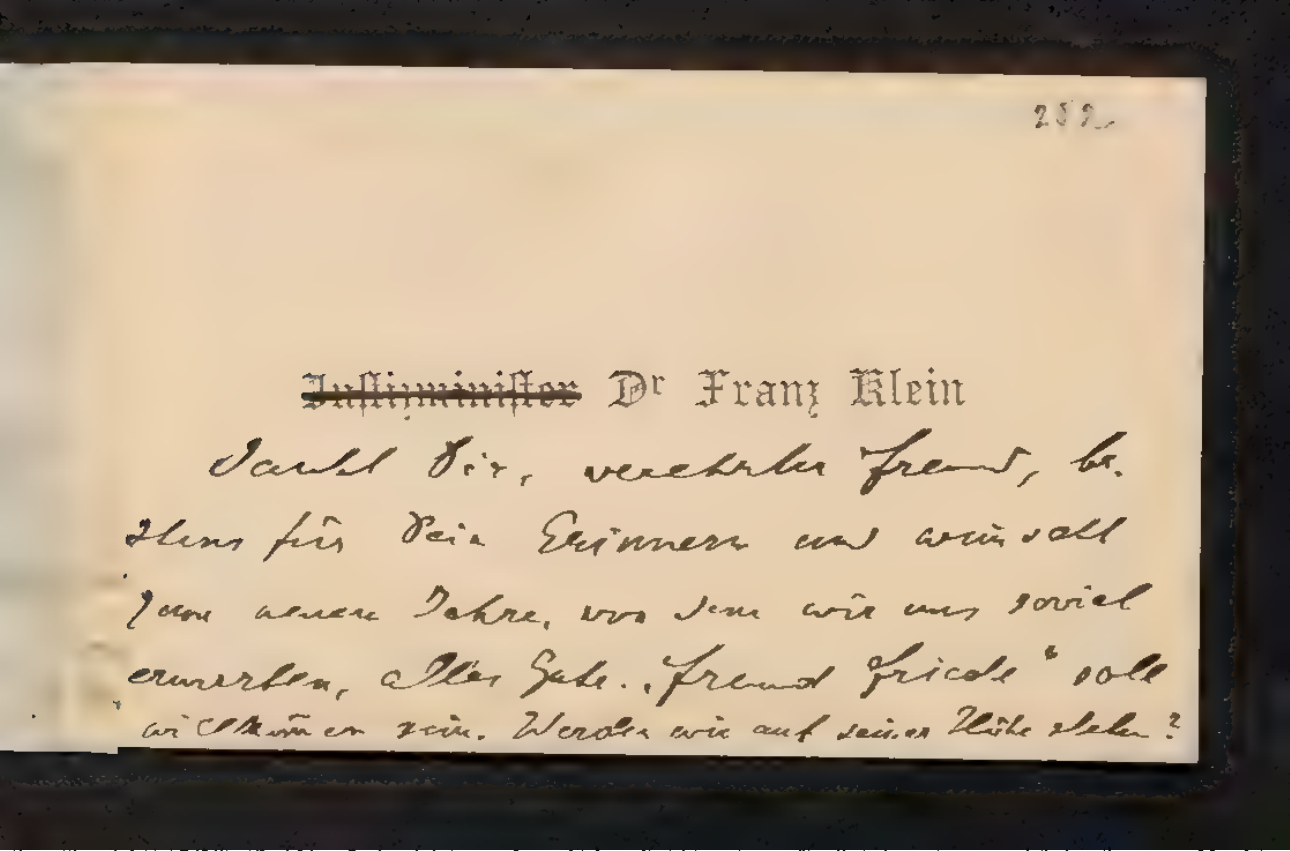 252
Justizminister Dr Franz Klein
dankt Dir, verehrter Freund, be-
stens für Dein Erinnern und wünscht
zum neuen Jahre, von dem wir uns soviel
erwarten, alles Gute. „Freund Friede“ soll
willkom̄en sein. Werden wir auf seiner Höhe stehen?